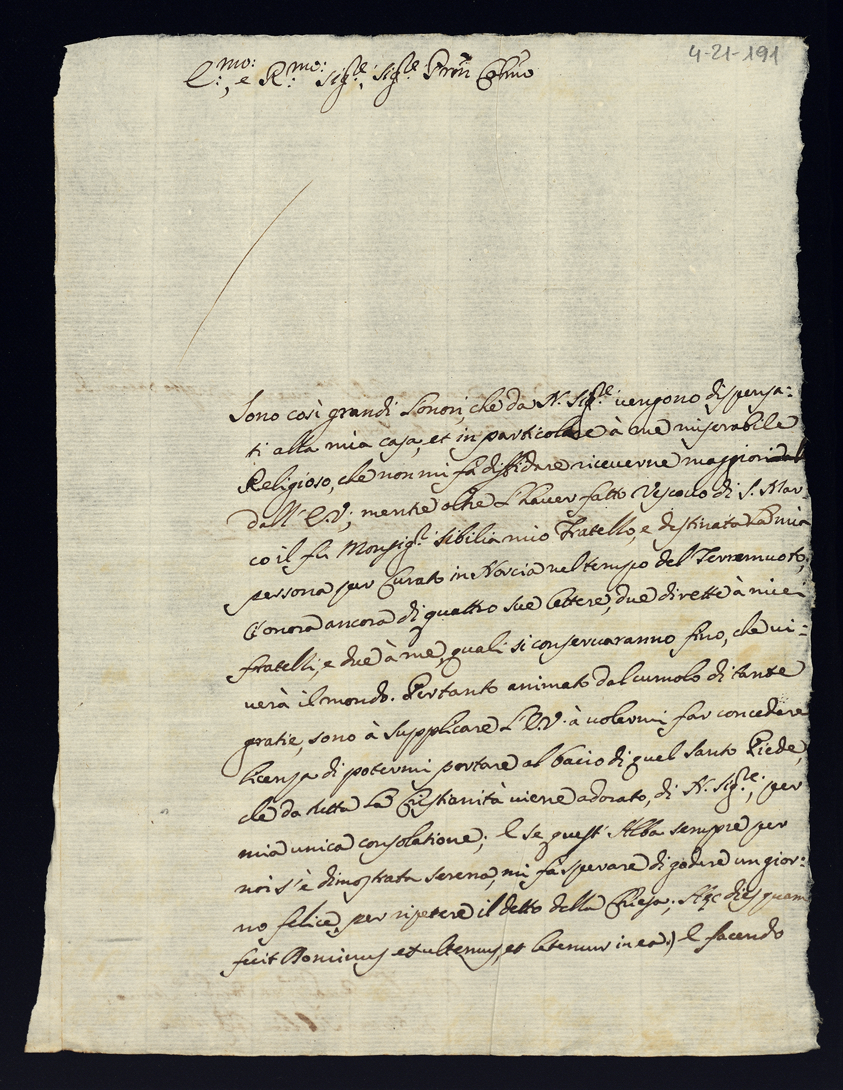 4-21-191
Ill.mo: e R.mo: Sig.re, Sig.re Pron Colmo
Sono così grandi l'onori, che da N. Sig.re vengono dispensa:
ti alla mia casa, et in particolare à me miserabile
Religioso, che non mi fà diffidare riceverne maggiori
dall' E.V; mentre oltre l'haver fatto Vescovo di S. Mar
co il fù Monsig.r Sibilia mio Fratello, e destinata la mia
persona per Curato in Norcia nel tempo del Terremuoto,
l'onora ancora di quattro sue lettere, due dirette à miei
fratelli, e due à me, quali si conservaranno fino, che vi:
verà il mondo. Pertanto animato dal cumolo di tante
gratie, sono à supplicare l'E.V. à volermi far concedere
licenza di potermi portare al bacio di quel Santo Piede,
che da tutta la Cristianità viene adorato, di N. Sig.re, per
mia unica consolatione; E se quest' Alba sempre per
noi s'è dimostrata serena, mi fà sperare di godere un gior:
no felice, per ripetere il detto della Chiesa; Hęc dies quam
fecit Dominus exultemus, et letemur in ea.) E facendo